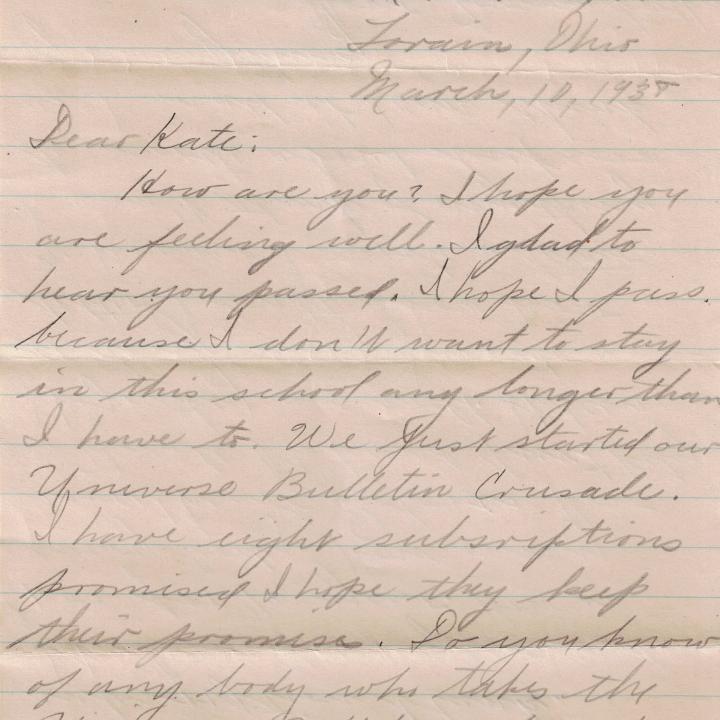 Lorain, Ohio
March, 10, 1938
Dear Kate:
How are you? I hope you
are feeling well. I glad to
hear you passed. I hope I pass.
because I don't want to stay
in this school any longer than
I have to. We just started our
Universe Bulletin Crusade.
I have eight subscriptions
promised I hope they keep
their promise. Do you know
of any body who takes the